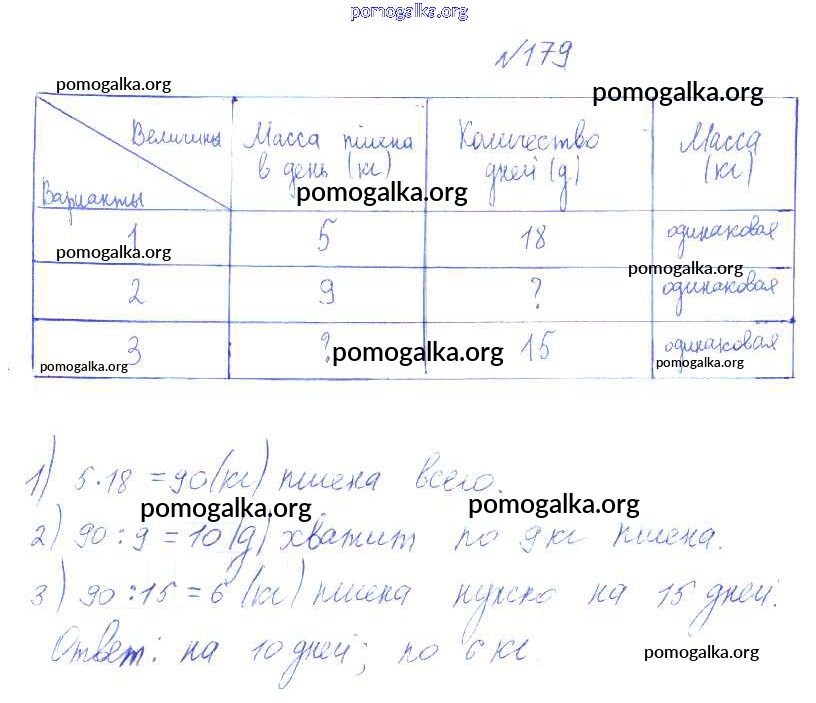 pomogalka.org
№179
pomogalka.org
pomogalka.org
Величины
Варианты
Масса пшена
в день (кг)
Количество
дней (д)
Масса
(кг)
pomogalka.org
1 5 18 одинаковая
pomogalka.org
pomogalka.org
2 9 ? одинаковая
3 ? 15 одинаковая
pomogalka.org
pomogalka.org
pomogalka.org
1) 5·18=90(кг) пшена всего.
pomogalka.org
pomogalka.org
2) 90:9=10(д) хватит по 9 кг пшена.
3) 90:15=6 (кг) пшена нужно на 15 дней.
Ответ: на 10 дней; по 6 кг.
pomogalka.org